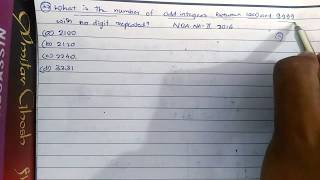 What is the number of odd integers between 1000 and 9999
with no digit repeated? NDA-NA-II 2016
(a) 2100
(b) 2120
(c) 2240
(d) 3331
Ghosh